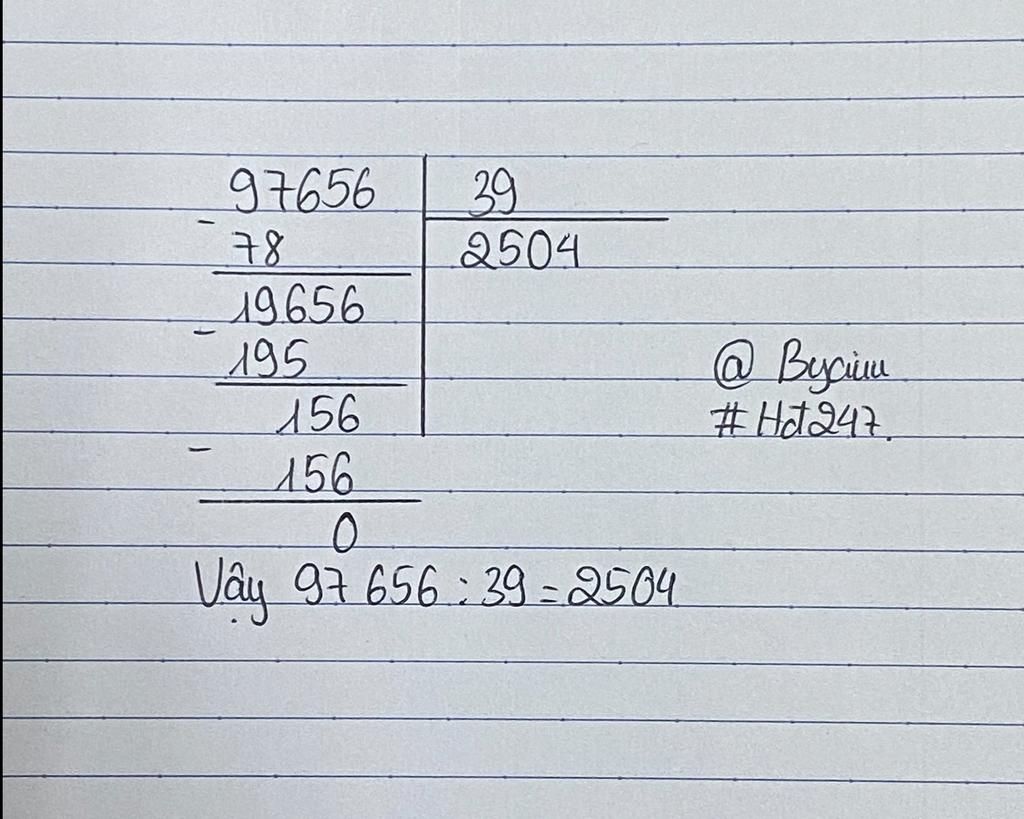 97656 39
- 78 2504
19656
- 195
156
- 156
0
Vậy 97 656 : 39 = 2504
@ Byciuu
#Hdt247.